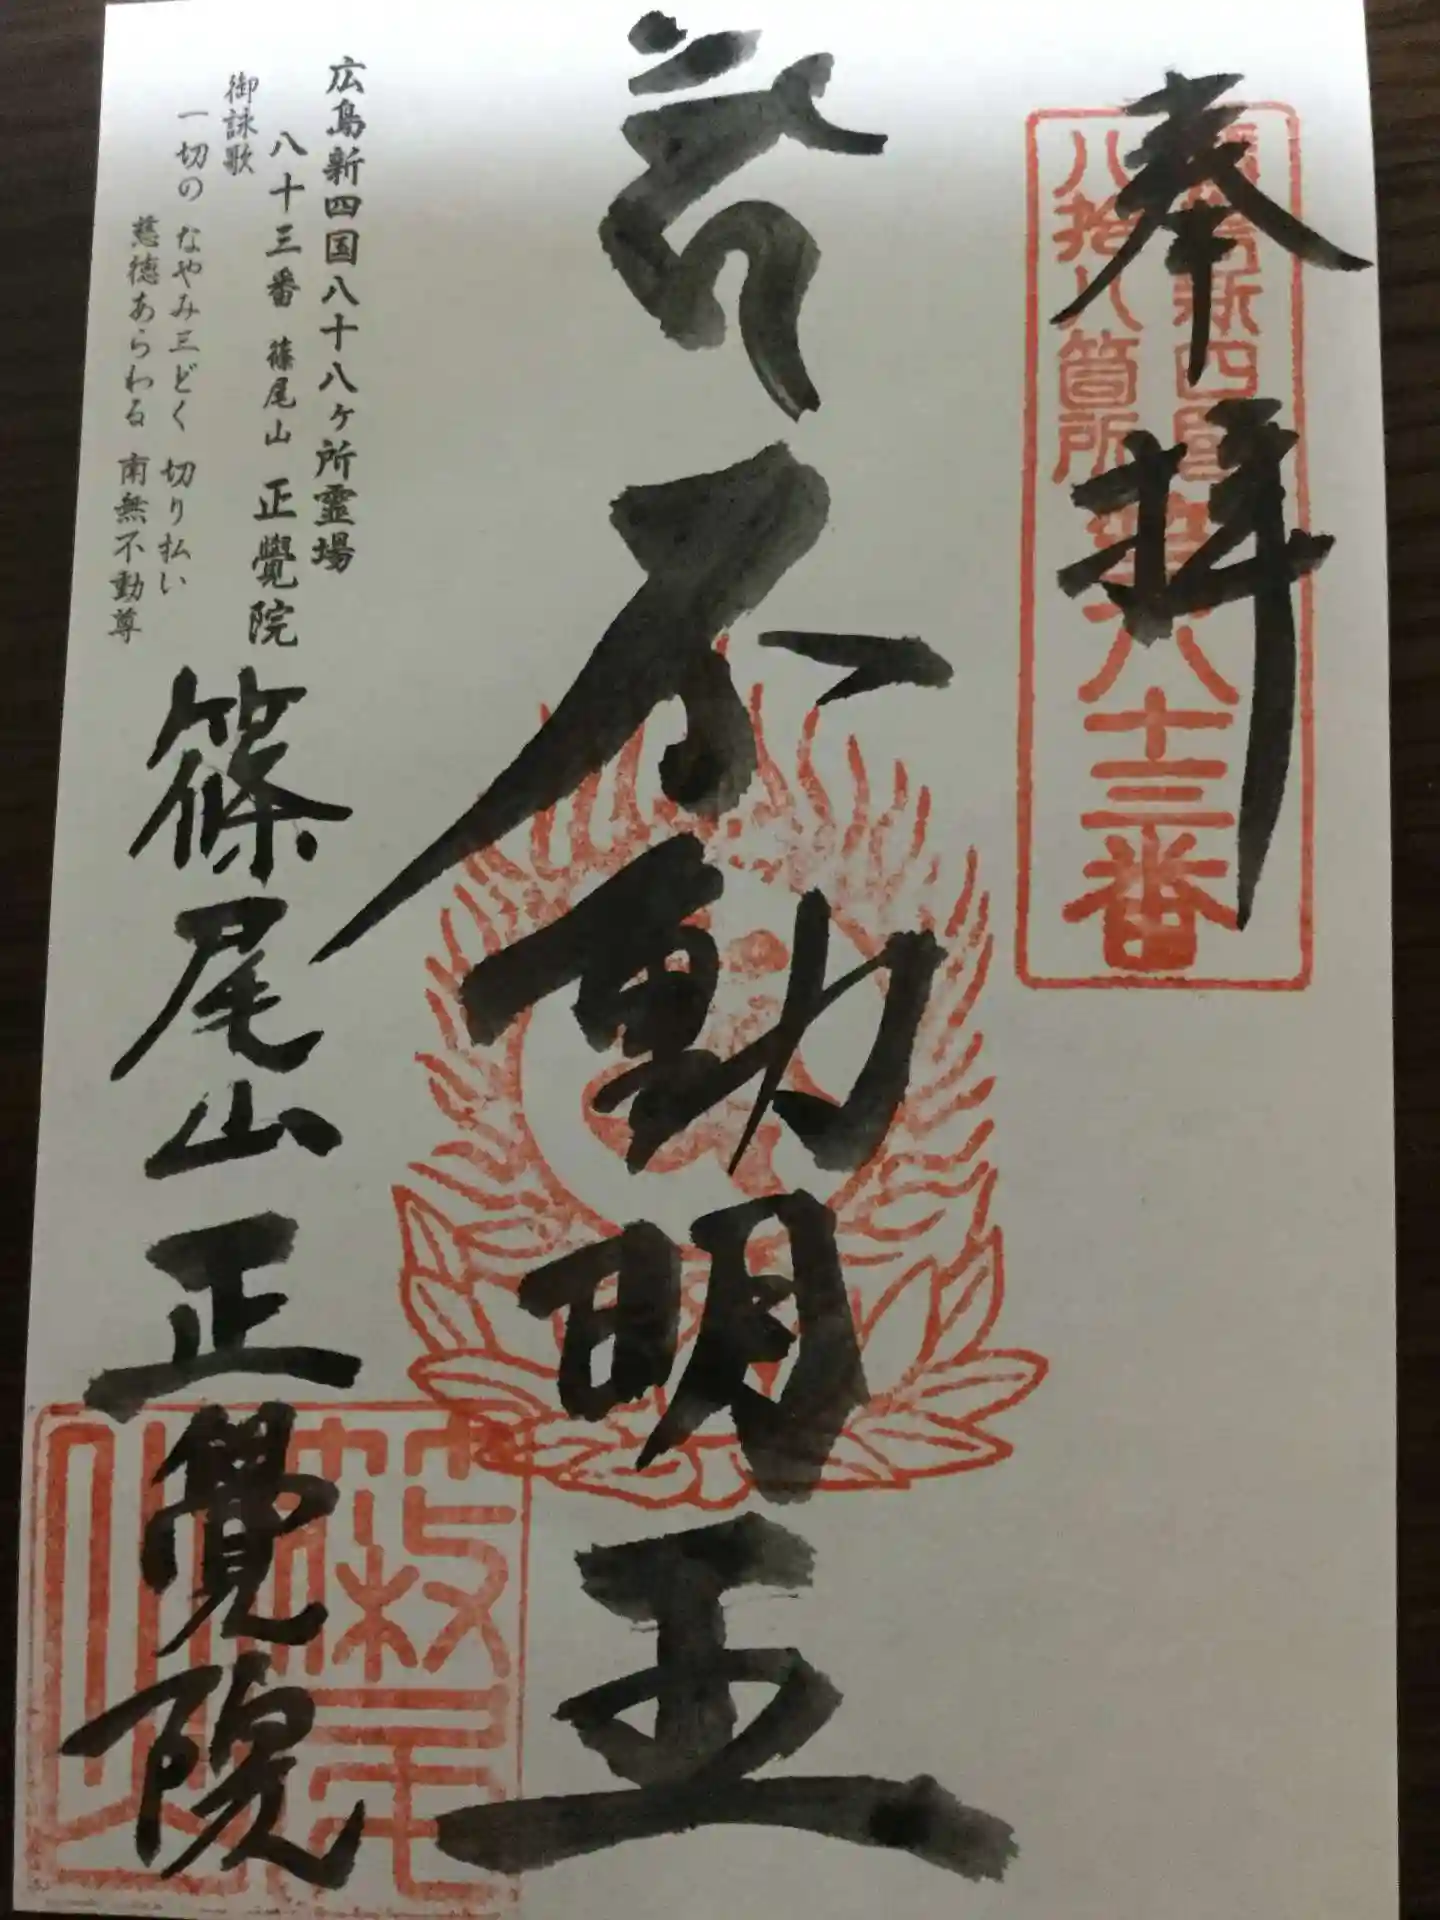 奉拝
新四国
八拾八箇所
第八十三番
不動明王
広島新四国八十八ヶ所霊場
八十三番 篠尾山 正覺院
御詠歌
一切の なやみ三どく 切り払い
慈徳あらわる 南無不動尊
篠尾山 正覺院